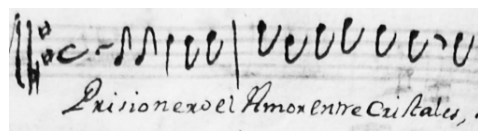 Prisionero el Amor entre Cristales,